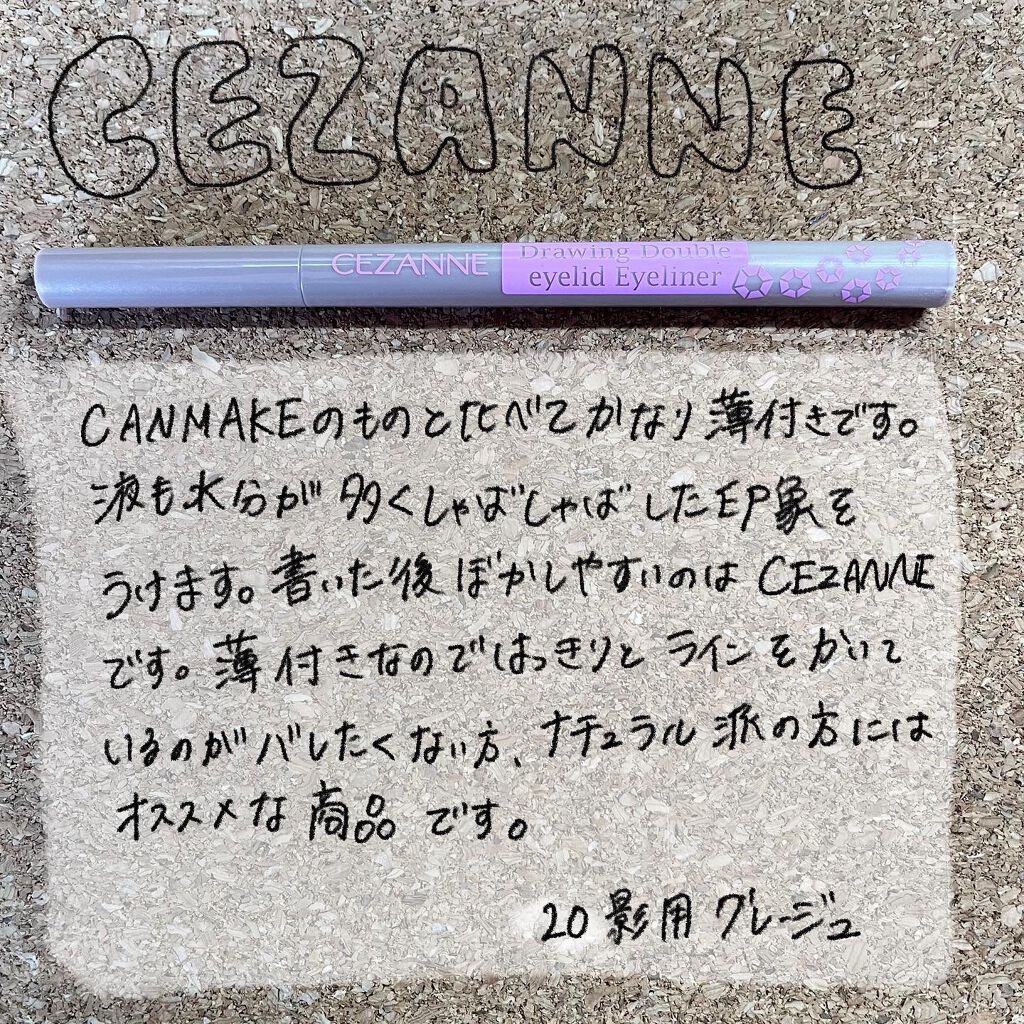 CEZANNE
CEZANNE
Drawing Double
eyelid Eyeliner
CANMAKEのものと比べてかなり薄付きです。
液も水分が多くしゃばしゃばした印象を
うけます。書いた後ぼかしやすいのはCEZANNE
です。薄付きなのではっきりとラインをかいて
いるのがバレたくない方、ナチュラル派の方には
オススメな商品です。
20 影用グレージュ